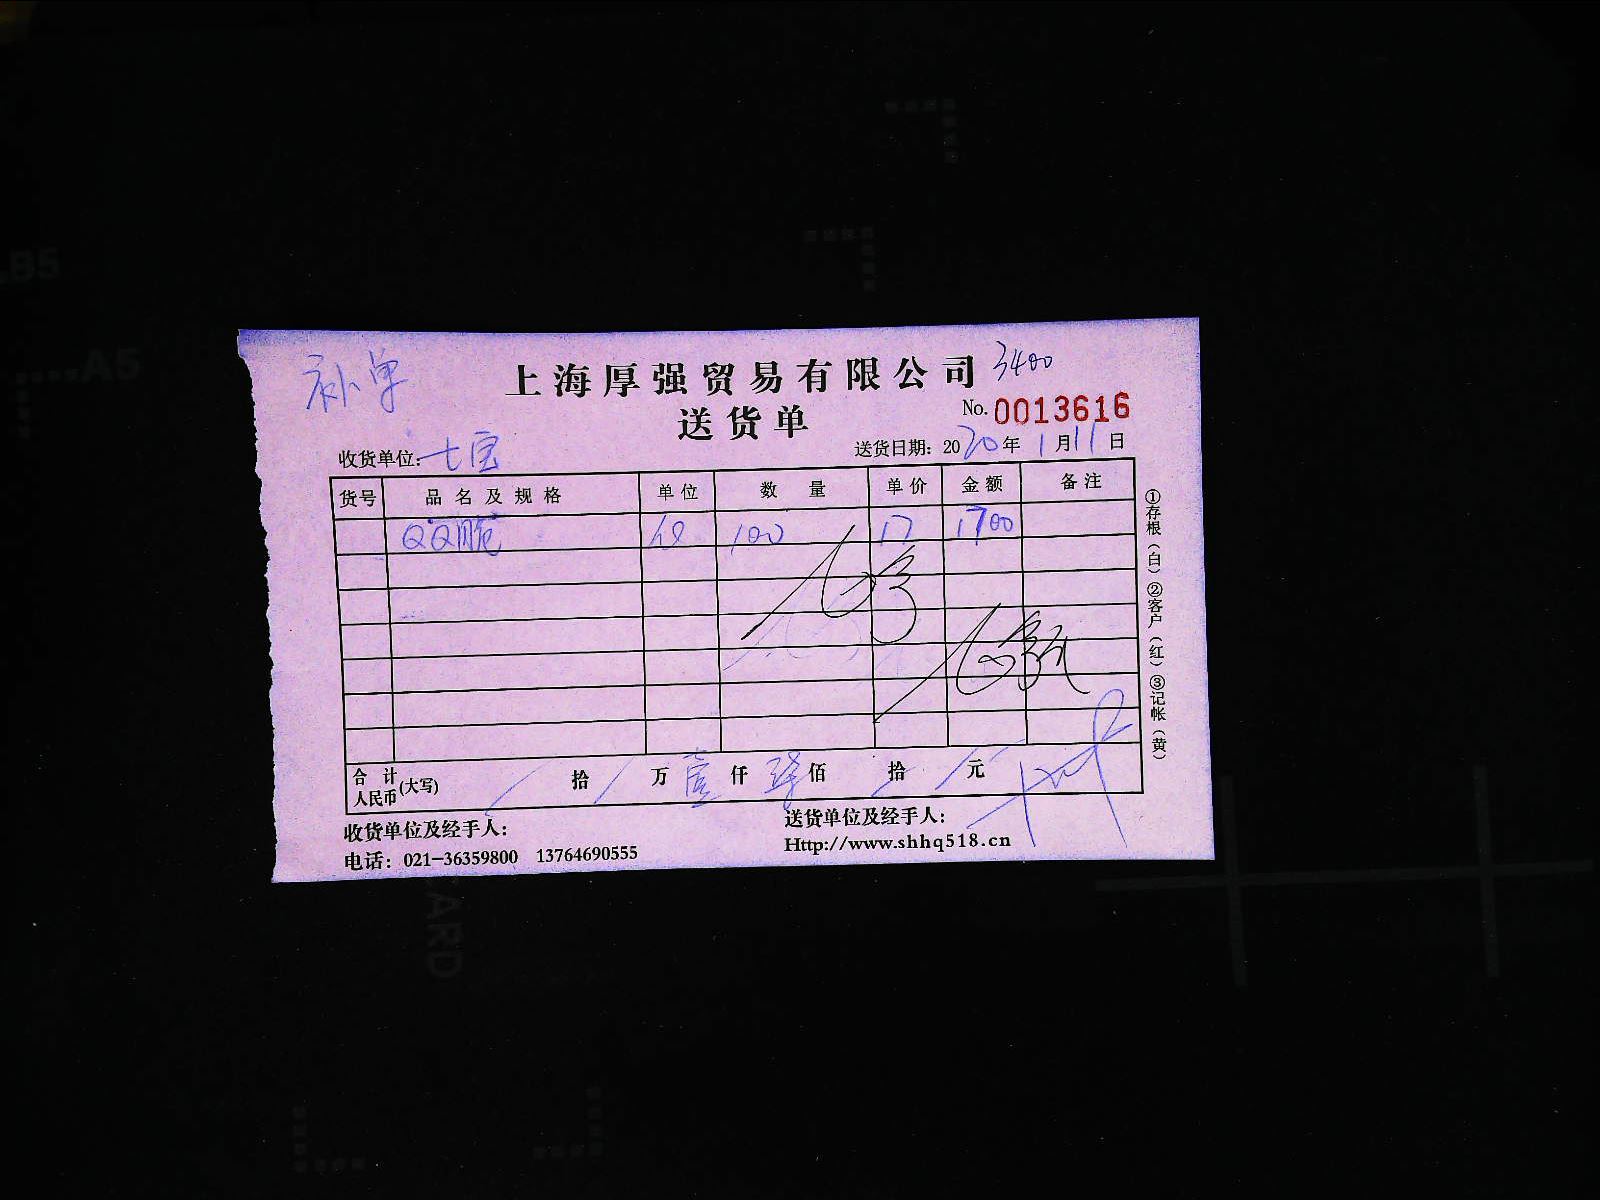 补单
上海厚强贸易有限公司 3400
送货单 No. 0013616
收货单位：七宝 送货日期：2020年1月11日
货号 品名及规格 单位 数量 单价 金额 备注
QQ脆 100 17 1700
合计人民币(大写) 拾 万 壹 仟 柒 佰 拾 元
收货单位及经手人： 送货单位及经手人：
电话：021-36359800 13764690555 Http://www.shhq518.cn
①存根（白）②客户（红）③记帐（黄）
B5
A5
ARD